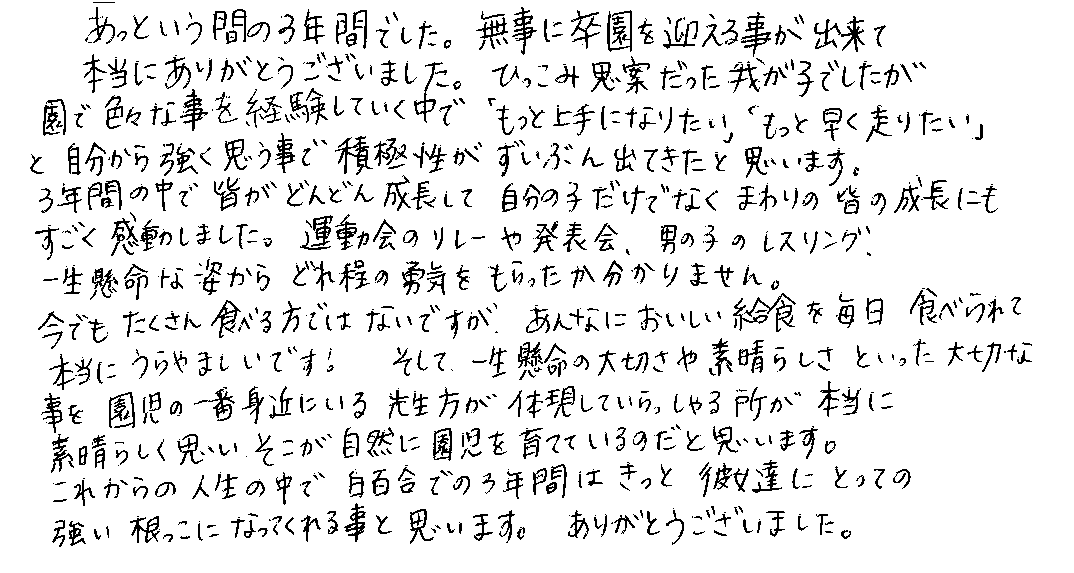 あっという間の3年間でした。無事に卒園を迎える事が出来て
本当にありがとうございました。ひっこみ思案だった我が子でしたが
園で色々な事を経験していく中で「もっと上手になりたい」「もっと早く走りたい」
と自分から強く思う事で積極性がずいぶん出てきたと思います。
3年間の中で皆がどんどん成長して自分の子だけでなくまわりの皆の成長にも
すごく感動しました。運動会のリレーや発表会、男の子のレスリング、
一生懸命な姿からどれ程の勇気をもらったか分かりません。
今でもたくさん食べる方ではないですが、あんなにおいしい給食を毎日食べられて
本当にうらやましいです! そして、一生懸命の大切さや素晴らしさといった大切な
事を園児の一番身近にいる先生方が体現していらっしゃる所が本当に
素晴らしく思い、そこが自然に園児を育てているのだと思います。
これからの人生の中で白百合での3年間はきっと彼女達にとっての
強い根っこになってくれる事と思います。ありがとうございました。